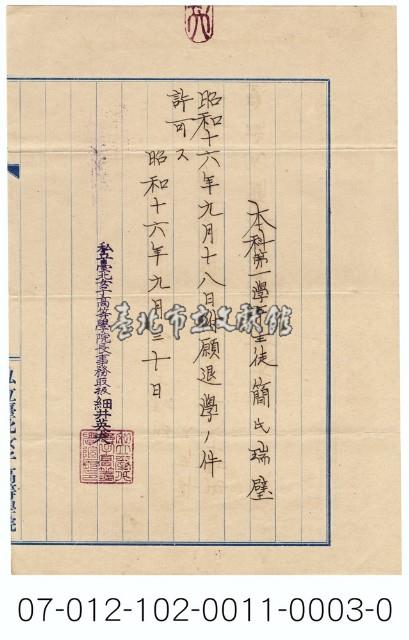 本科第一學年生徒簡氏瑞璧
昭和十六年九月十八日付願退學ノ件
許可ス
昭和十六年九月三十日
私立臺北女子高等學院長事務取扱 細井英夫
私立臺北女子高等學院
臺北市立文獻館
07-012-102-0011-0003-0